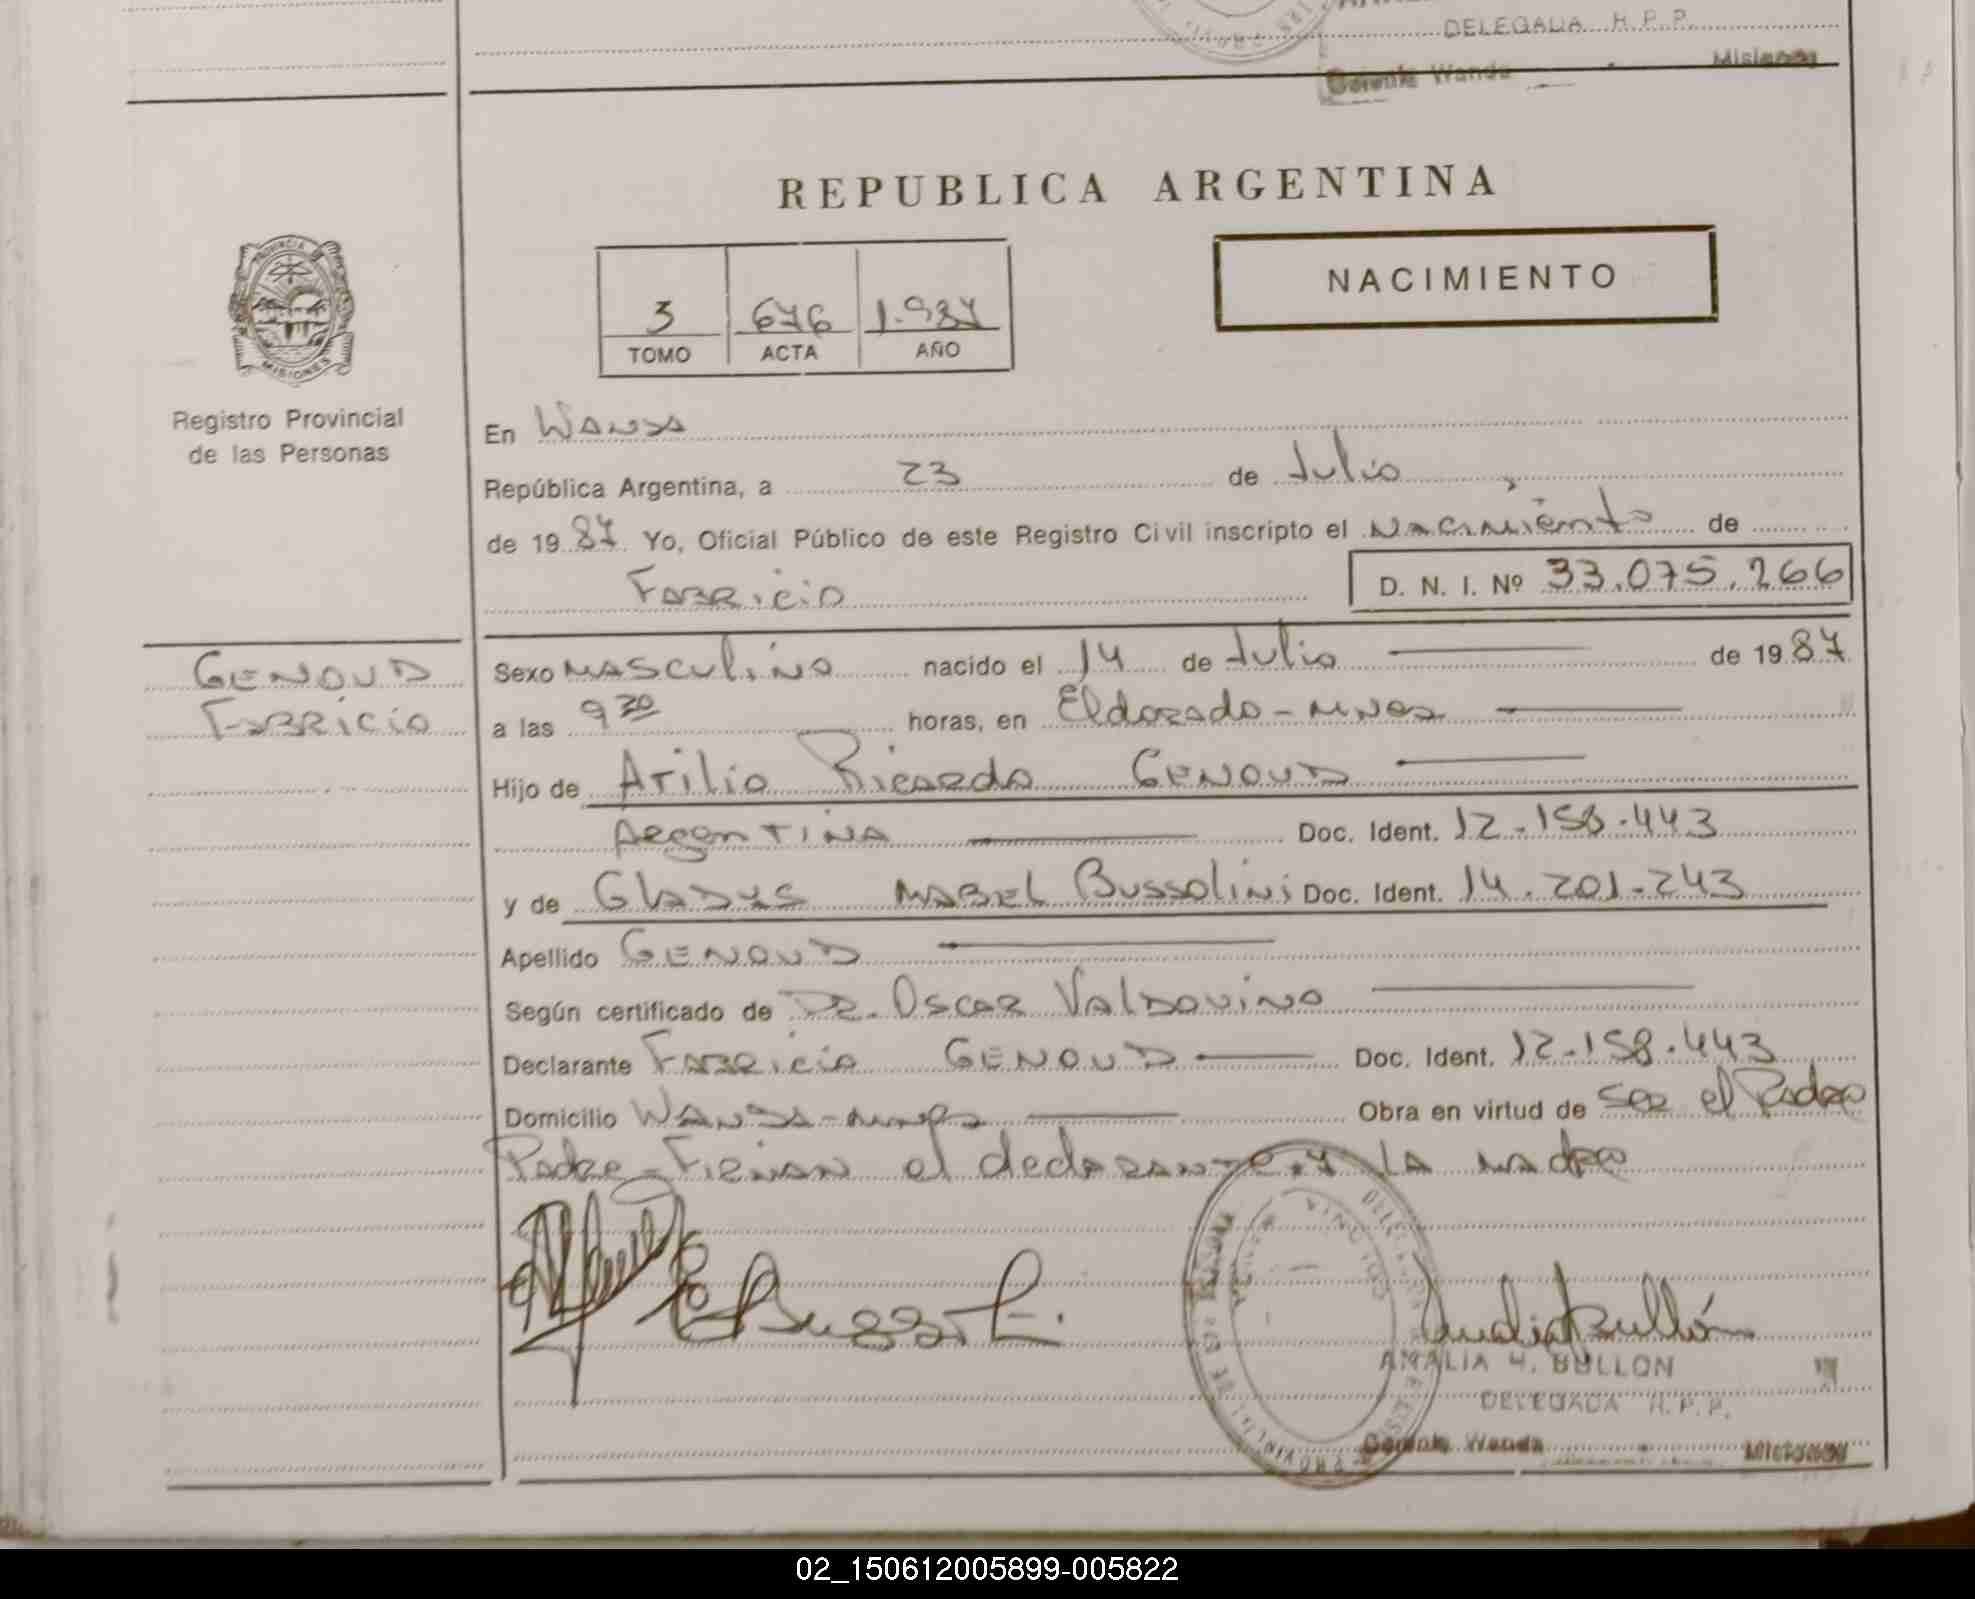 DELEGADA H. P. P.
Gerente Wanda Misiones
REPUBLICA ARGENTINA
NACIMIENTO
3 676 1.987
TOMO ACTA AÑO
PROVINCIA
MISIONES
Registro Provincial
de las Personas
En Wanda
República Argentina, a 23 de Julio
de 1987. Yo, Oficial Público de este Registro Civil inscripto el Nacimiento de
Fabricio D. N. I. Nº 33.075.266
GENOUD
Fabricio
Sexo Masculino nacido el 14 de Julio de 1987
a las 9 30 horas, en Eldorado - Mnes
Hijo de Atilio Ricardo GENOUD
Argentina Doc. Ident. 12.158.443
y de Gladys Mabel Bussolini Doc. Ident. 14.201.243
Apellido GENOUD
Según certificado de Dr. Oscar Valdovino
Declarante Fabricio GENOUD Doc. Ident. 12.158.443
Domicilio Wanda - Mnes Obra en virtud de ser el Padre
Padre - Firman el declarante y la madre
AMALIA H. BULLON
DELEGADA H. P. P.
Gerente Wanda Misiones
02_150612005899-005822